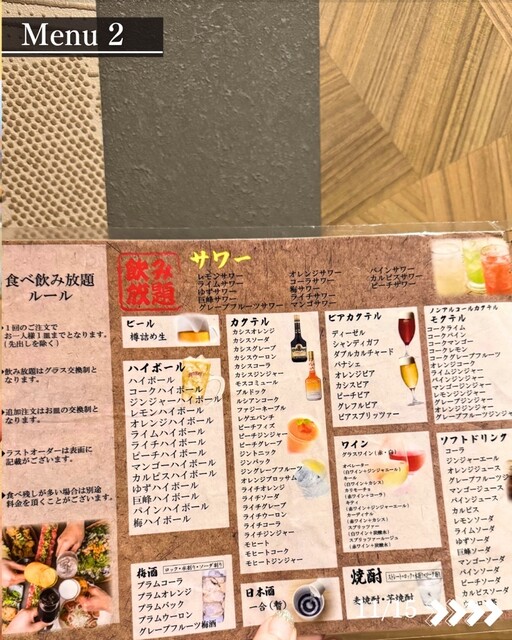 Menu 2
食べ飲み放題
ルール
・1回のご注文で
お一人様1皿までとなります。
(先出しを除く)
・飲み放題はグラス交換制と
なります。
・追加注文はお皿の交換制と
なります。
・ラストオーダーは表面に
記載がございます。
・食べ残しが多い場合は別途
料金を頂くことがございます。
飲み
放題
サワー
レモンサワー
ライムサワー
ゆずサワー
巨峰サワー
グレープフルーツサワー
オレンジサワー
コーラサワー
梅サワー
ライチサワー
マンゴーサワー
パインサワー
カルピスサワー
ピーチサワー
ビール
樽詰め生
ハイボール
ハイボール
コークハイボール
ジンジャーハイボール
レモンハイボール
オレンジハイボール
ライムハイボール
ライチハイボール
ピーチハイボール
マンゴーハイボール
カルピスハイボール
ゆずハイボール
巨峰ハイボール
パインハイボール
梅ハイボール
梅酒
ロック・水割り・ソーダ割り
プラムコーラ
プラムオレンジ
プラムバック
プラムウーロン
グレープフルーツ梅酒
カクテル
カシスオレンジ
カシスソーダ
カシスグレープ
カシスウーロン
カシスコーラ
カシスジンジャー
モスコミュール
ブルドック
ルシアンコーク
ファジーネーブル
レゲエパンチ
ピーチフィズ
ピーチジンジャー
ピーチグレープ
ジントニック
ジンバック
ジングレープフルーツ
オレンジブロッサム
ライチオレンジ
ライチソーダ
ライチグレープ
ライチウーロン
ライチコーラ
ライチジンジャー
モヒート
モヒートコーク
モヒートジンジャー
日本酒
一合(暫)
ビアカクテル
ディーゼル
シャンディガフ
ダブルカルチャード
パナシェ
オレンジビア
カシスビア
ピーチビア
グレフルビア
ビアスプリッツァー
ワイン
グラスワイン(赤・白)
オペレーター
(白ワイン+ジンジャエール)
キール
(白ワイン+カシス)
カリモーチョ
(赤ワイン+コーラ)
キティ
(赤ワイン+ジンジャーエール)
カーディナル
(赤ワイン+カシス)
スプリッツァー
(白ワイン+炭酸水)
スプリッツァールージュ
(赤ワイン+炭酸水)
焼酎
麦焼酎・芋焼酎
ノンアルコールカクテル
モクテル
コークライム
コークパイン
コークマンゴー
コークレモン
コークグレープフルーツ
オレンジコーク
ライムジンジャー
パインジンジャー
マンゴージンジャー
レモンジンジャー
オレンジジンジャー
グレープフルーツジンジャー
ソフトドリンク
コーラ
ジンジャーエール
オレンジジュース
グレープフルーツジュース
マンゴージュース
パインジュース
カルピス
レモンソーダ
ライムソーダ
ゆずソーダ
巨峰ソーダ
マンゴーソーダ
パインソーダ
ピーチソーダ
カルピスソーダ
11/15